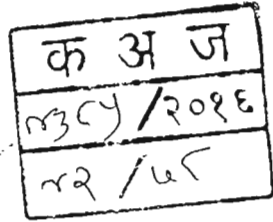 क अ ज
४३८५/२०१६
४२/५८